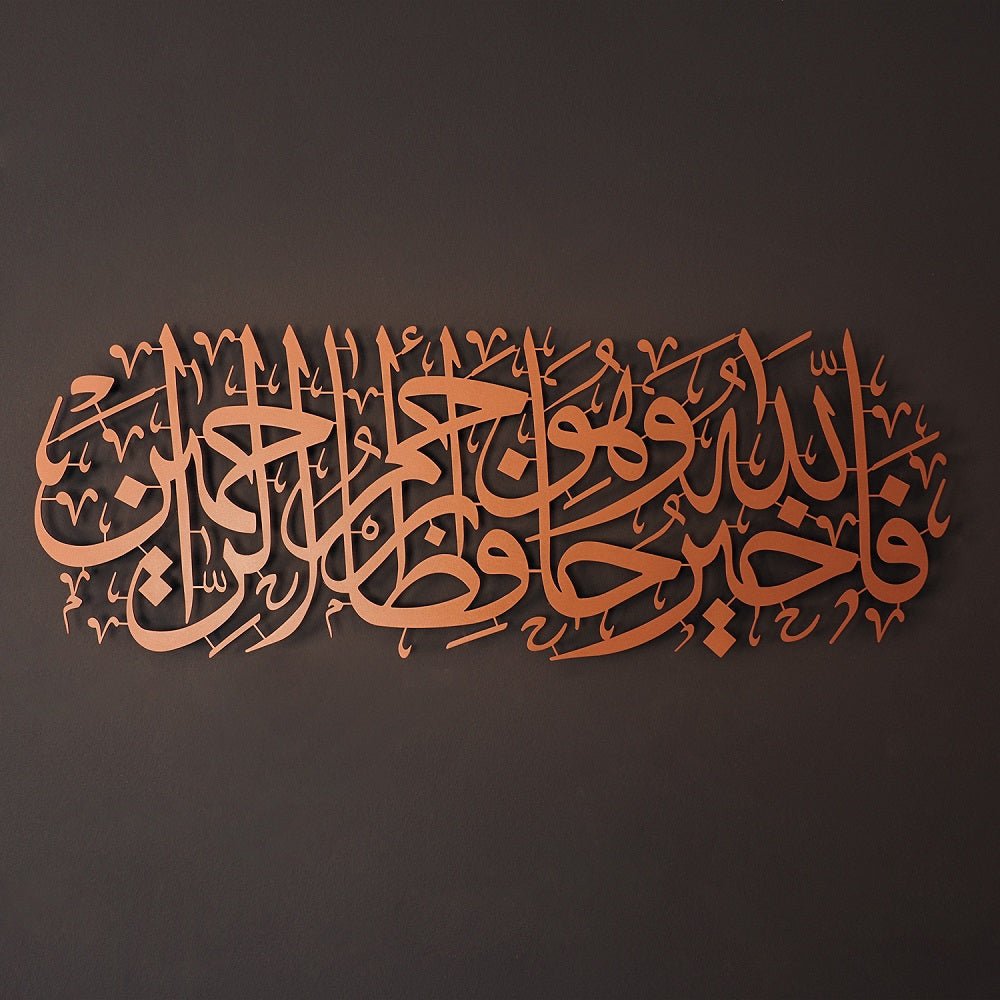 فَاللَّهُ خَيْرٌ حَافِظًا وَهُوَ أَرْحَمُ الرَّاحِمِينَ